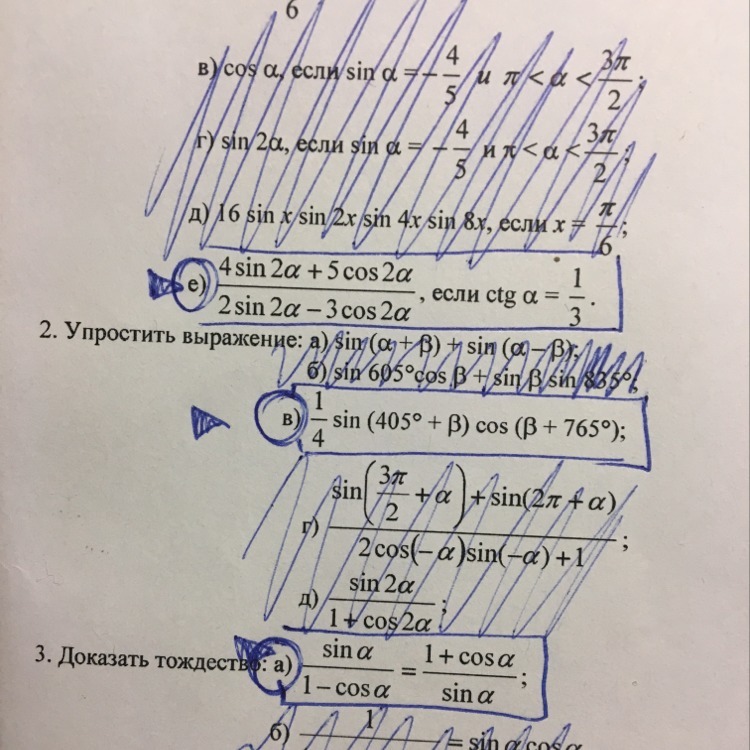 6
в) cos α, если sin α = −4/5 и π < α < 3π/2;
г) sin 2α, если sin α = −4/5 и π < α < 3π/2;
д) 16 sin x sin 2x sin 4x sin 8x, если x = π/6;
е) (4 sin 2α + 5 cos 2α)/(2 sin 2α − 3 cos 2α), если ctg α = 1/3.
2. Упростить выражение: а) sin (α + β) + sin (α − β);
б) sin 605°cos β + sin β sin 835°;
в) 1/4 sin (405° + β) cos (β + 765°);
г) (sin(3π/2 + α) + sin(2π + α))/(2 cos(−α)sin(−α) + 1);
д) sin 2α/(1 + cos 2α);
3. Доказать тождество: а) sin α/(1 − cos α) = (1 + cos α)/sin α;
б) 1 = sin α cos α